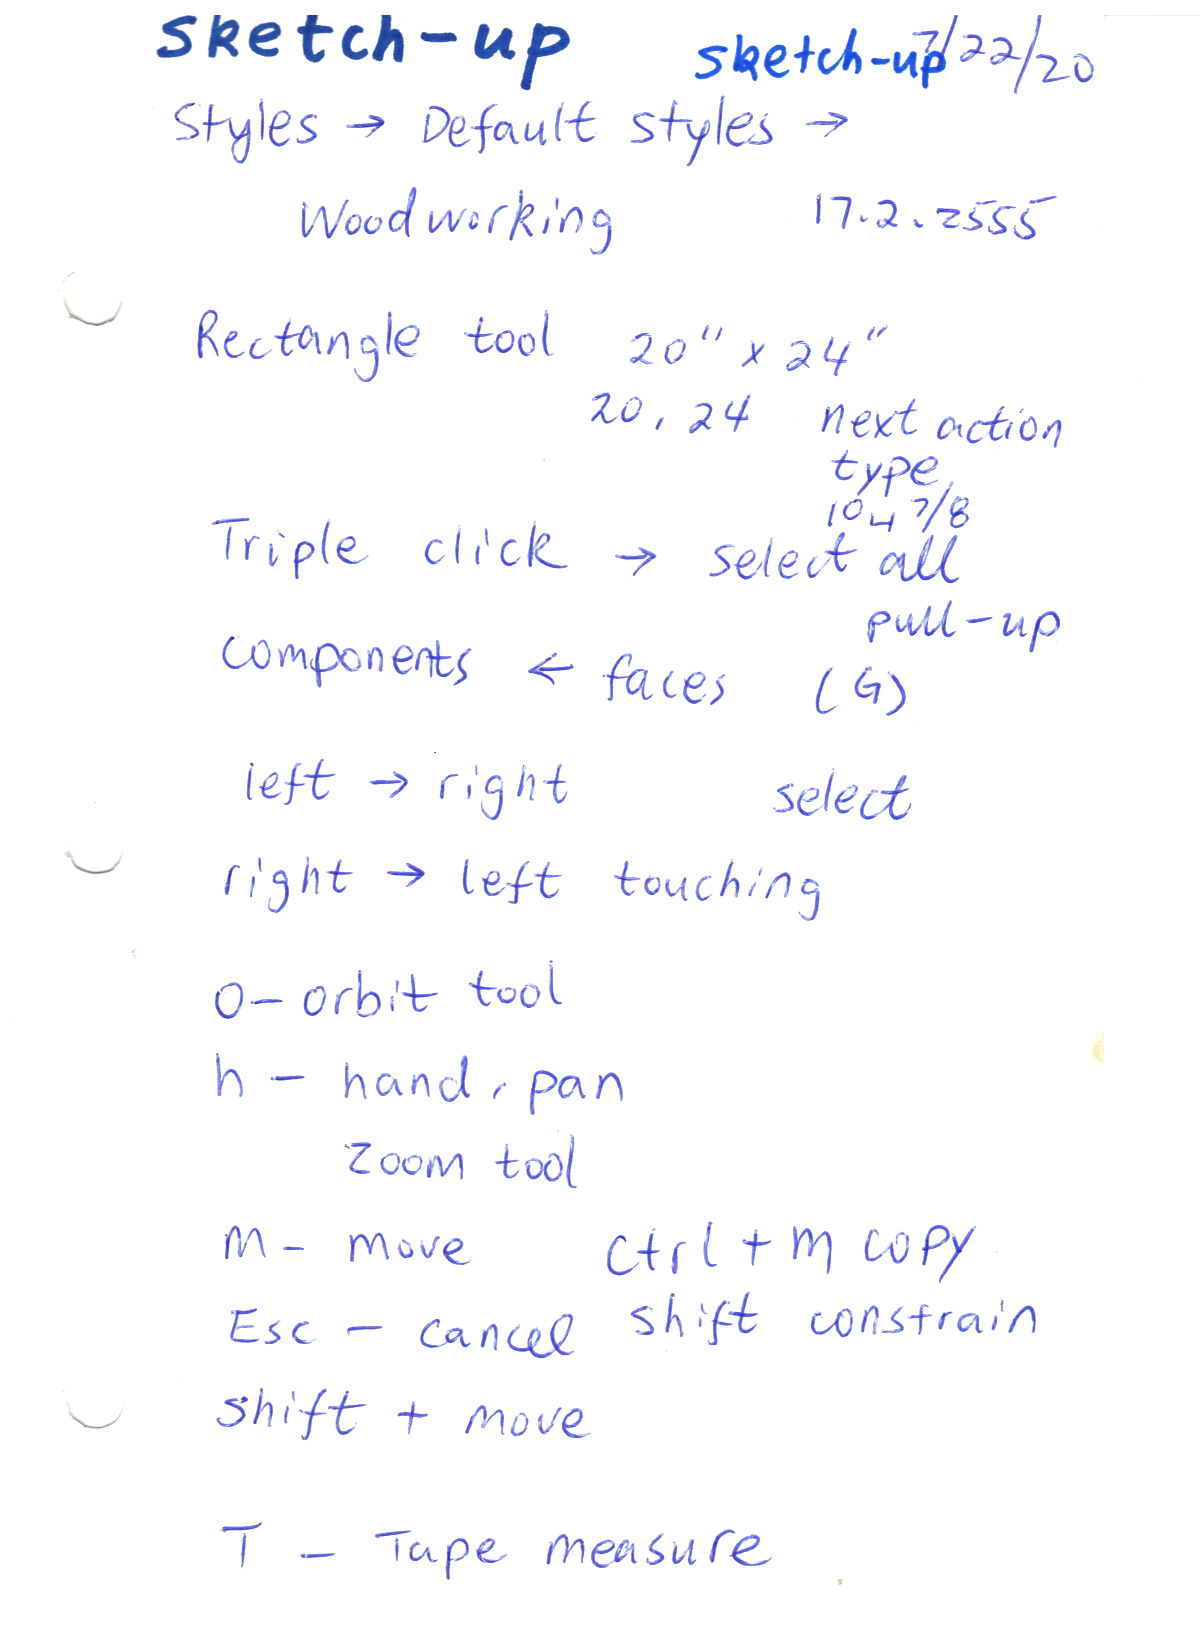 sketch-up
sketch-up 7/22/20
Styles → Default styles →
Woodworking 17.2.2555
Rectangle tool 20" x 24"
20, 24 next action
type
10 4 7/8
Triple click → select all
pull-up
components ← faces (G)
left → right select
right → left touching
O - orbit tool
h - hand, pan
Zoom tool
M - move Ctrl + m copy
Esc - cancel shift constrain
shift + move
T - Tape measure